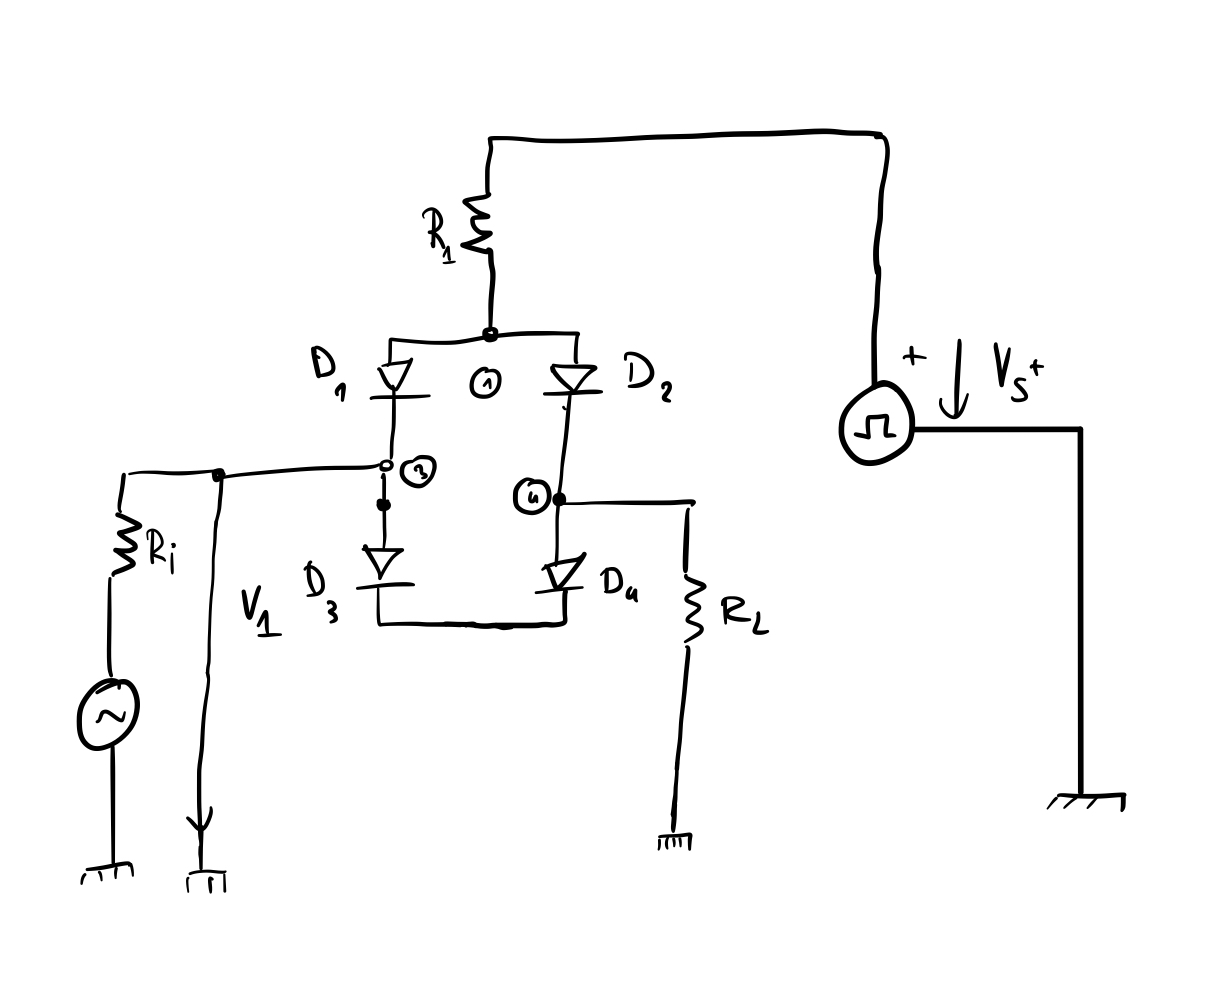 R1
D1
1
D2
+
Vs+
3
4
Ri
V1
D3
D4
RL